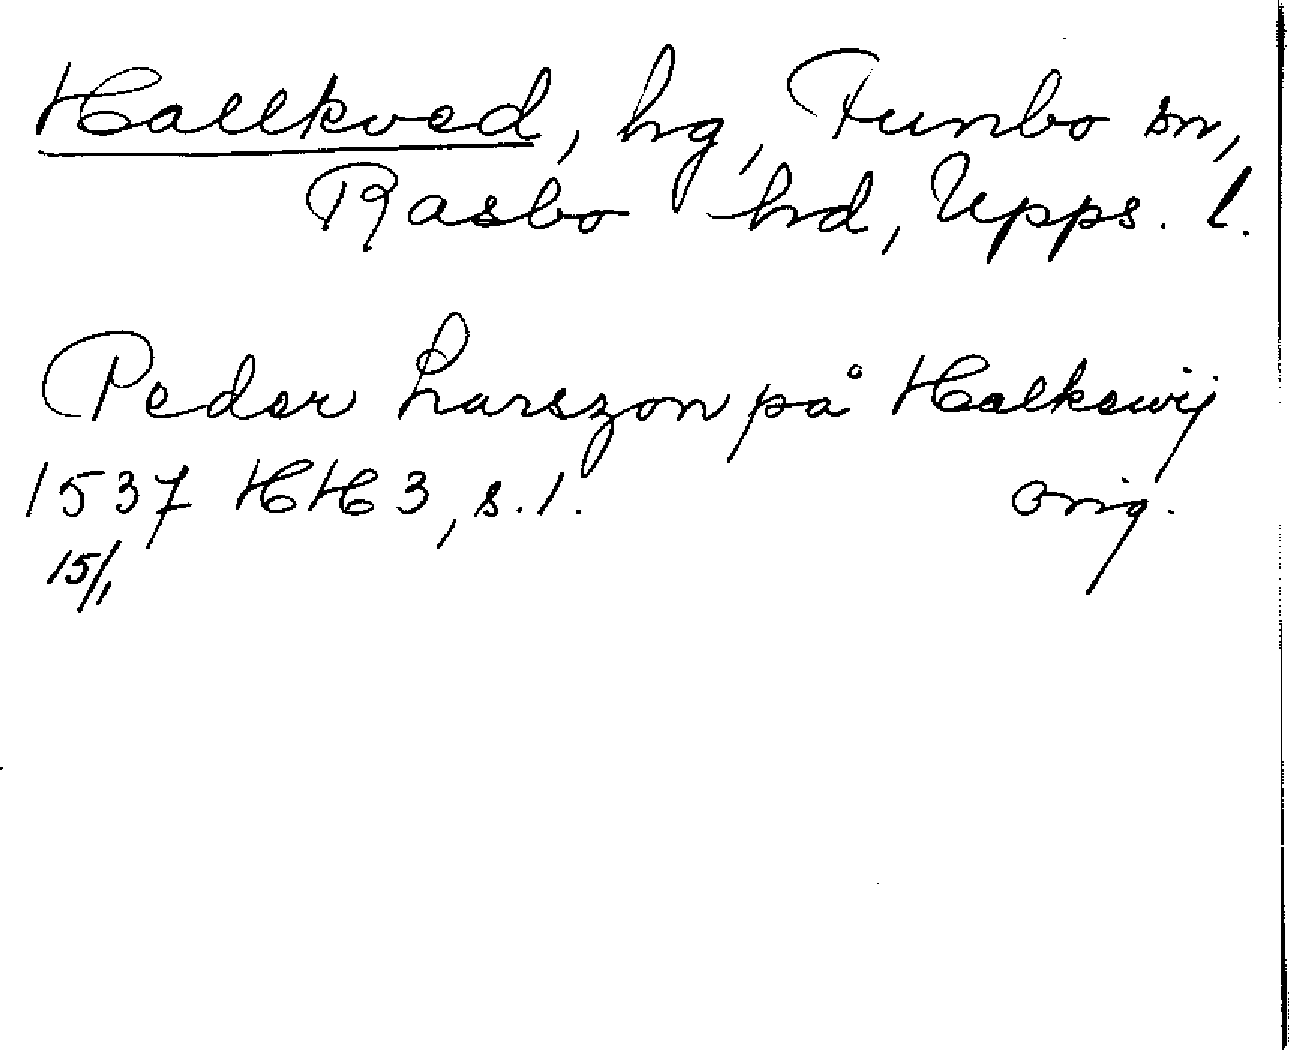 Hallkved, hg, Funbo sn,
Rasbo hd, Upps. l.
Peder Larszon på Halkewij
1537 HH 3, s. 1. orig.
15/1